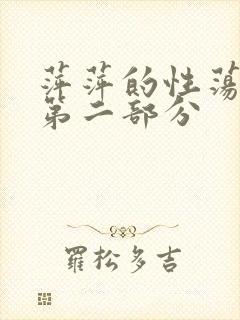 萍萍的性荡
第二部分
羅松多吉